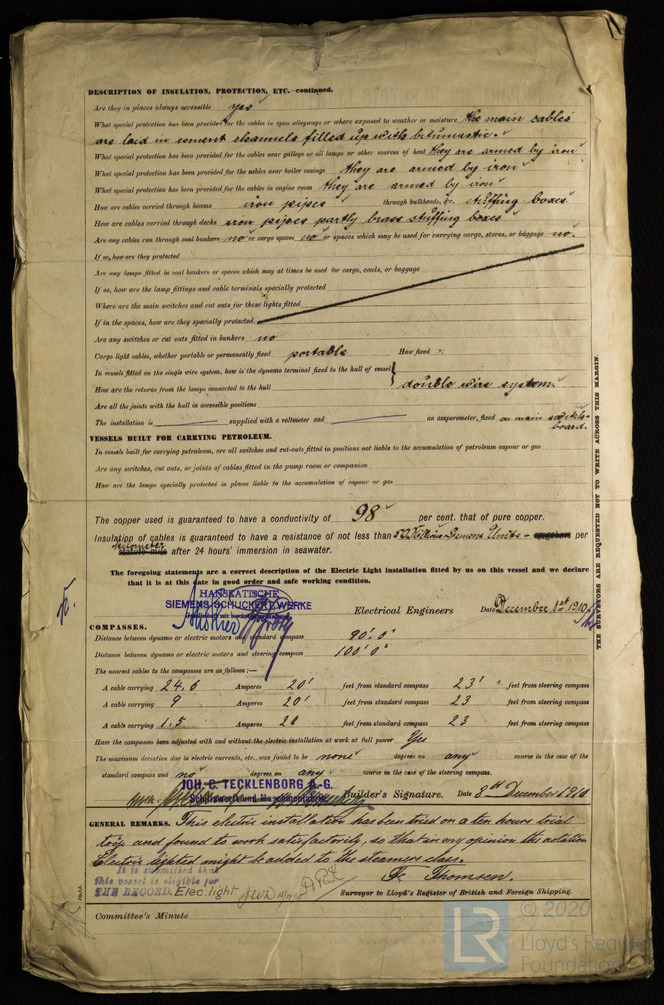 DESCRIPTION OF INSULATION, PROTECTION, ETC.—continued.
Are they in places always accessible yes
What special protection has been provided for the cables in open alleyways or where exposed to weather or moisture the main cables
are laid in cement channels filled up with bitumastic.
What special protection has been provided for the cables near galleys or oil lamps or other sources of heat they are armed by iron
What special protection has been provided for the cables near boiler casings they are armed by iron
What special protection has been provided for the cables in engine room they are armed by iron
How are cables carried through beams iron pipes through bulkheads, &c. stuffing boxes
How are cables carried through decks iron pipes partly brass stuffing boxes
Are any cables run through coal bunkers no or cargo spaces no or spaces which may be used for carrying cargo, stores, or baggage no.
If so, how are they protected
Are any lamps fitted in coal bunkers or spaces which may at times be used for cargo, coals, or baggage
If so, how are the lamp fittings and cable terminals specially protected
Where are the main switches and cut outs for these lights fitted
If in the spaces, how are they specially protected
Are any switches or cut outs fitted in bunkers no
Cargo light cables, whether portable or permanently fixed portable How fixed
In vessels fitted on the single wire system, how is the dynamo terminal fixed to the hull of vessel
How are the returns from the lamps connected to the hull double wire system.
Are all the joints with the hull in accessible positions
The installation is supplied with a voltmeter and an amperemeter, fixed on main switch-
board.
VESSELS BUILT FOR CARRYING PETROLEUM.
In vessels built for carrying petroleum, are all switches and cut-outs fitted in positions not liable to the accumulation of petroleum vapour or gas
Are any switches, cut outs, or joints of cables fitted in the pump room or companion
How are the lamps specially protected in places liable to the accumulation of vapour or gas
The copper used is guaranteed to have a conductivity of 98 per cent. that of pure copper.
Insulation of cables is guaranteed to have a resistance of not less than Siemens Units - megohms per
kilometer
statute mile after 24 hours' immersion in seawater.
The foregoing statements are a correct description of the Electric Light installation fitted by us on this vessel and we declare
that it is at this date in good order and safe working condition.
HANSEATISCHE
SIEMENS-SCHUCKERT WERKE
Electrical Engineers Date December 1st 1910
COMPASSES.
Distance between dynamo or electric motors and standard compass 90'.0"
Distance between dynamo or electric motors and steering compass 100'.0"
The nearest cables to the compasses are as follows:—
A cable carrying 24,6 Amperes 20' feet from standard compass 23' feet from steering compass
A cable carrying 9 Amperes 20' feet from standard compass 23 feet from steering compass
A cable carrying 1.5 Amperes 20 feet from standard compass 23 feet from steering compass
Have the compasses been adjusted with and without the electric installation at work at full power Yes
The maximum deviation due to electric currents, etc., was found to be none degrees on any course in the case of the
standard compass and no degrees on any course in the case of the steering compass.
JOH. C. TECKLENBORG A.-G.
Schiffswerft und Maschinenfabrik
Builder's Signature. Date 8th December 1910
GENERAL REMARKS. This electric installation has been tried on a ten hours trial
trip and found to work satisfactorily, so that in my opinion the notation
Electric lighted might be added to the steamers class.
It is submitted that
this vessel is eligible for
THE RECORD. Elec. light
Fr. Thomsen.
Surveyor to Lloyd's Register of British and Foreign Shipping.
Committee's Minute
THE SURVEYORS ARE REQUESTED NOT TO WRITE ACROSS THIS MARGIN.
© 2020
LR
Lloyd's Register
Foundation